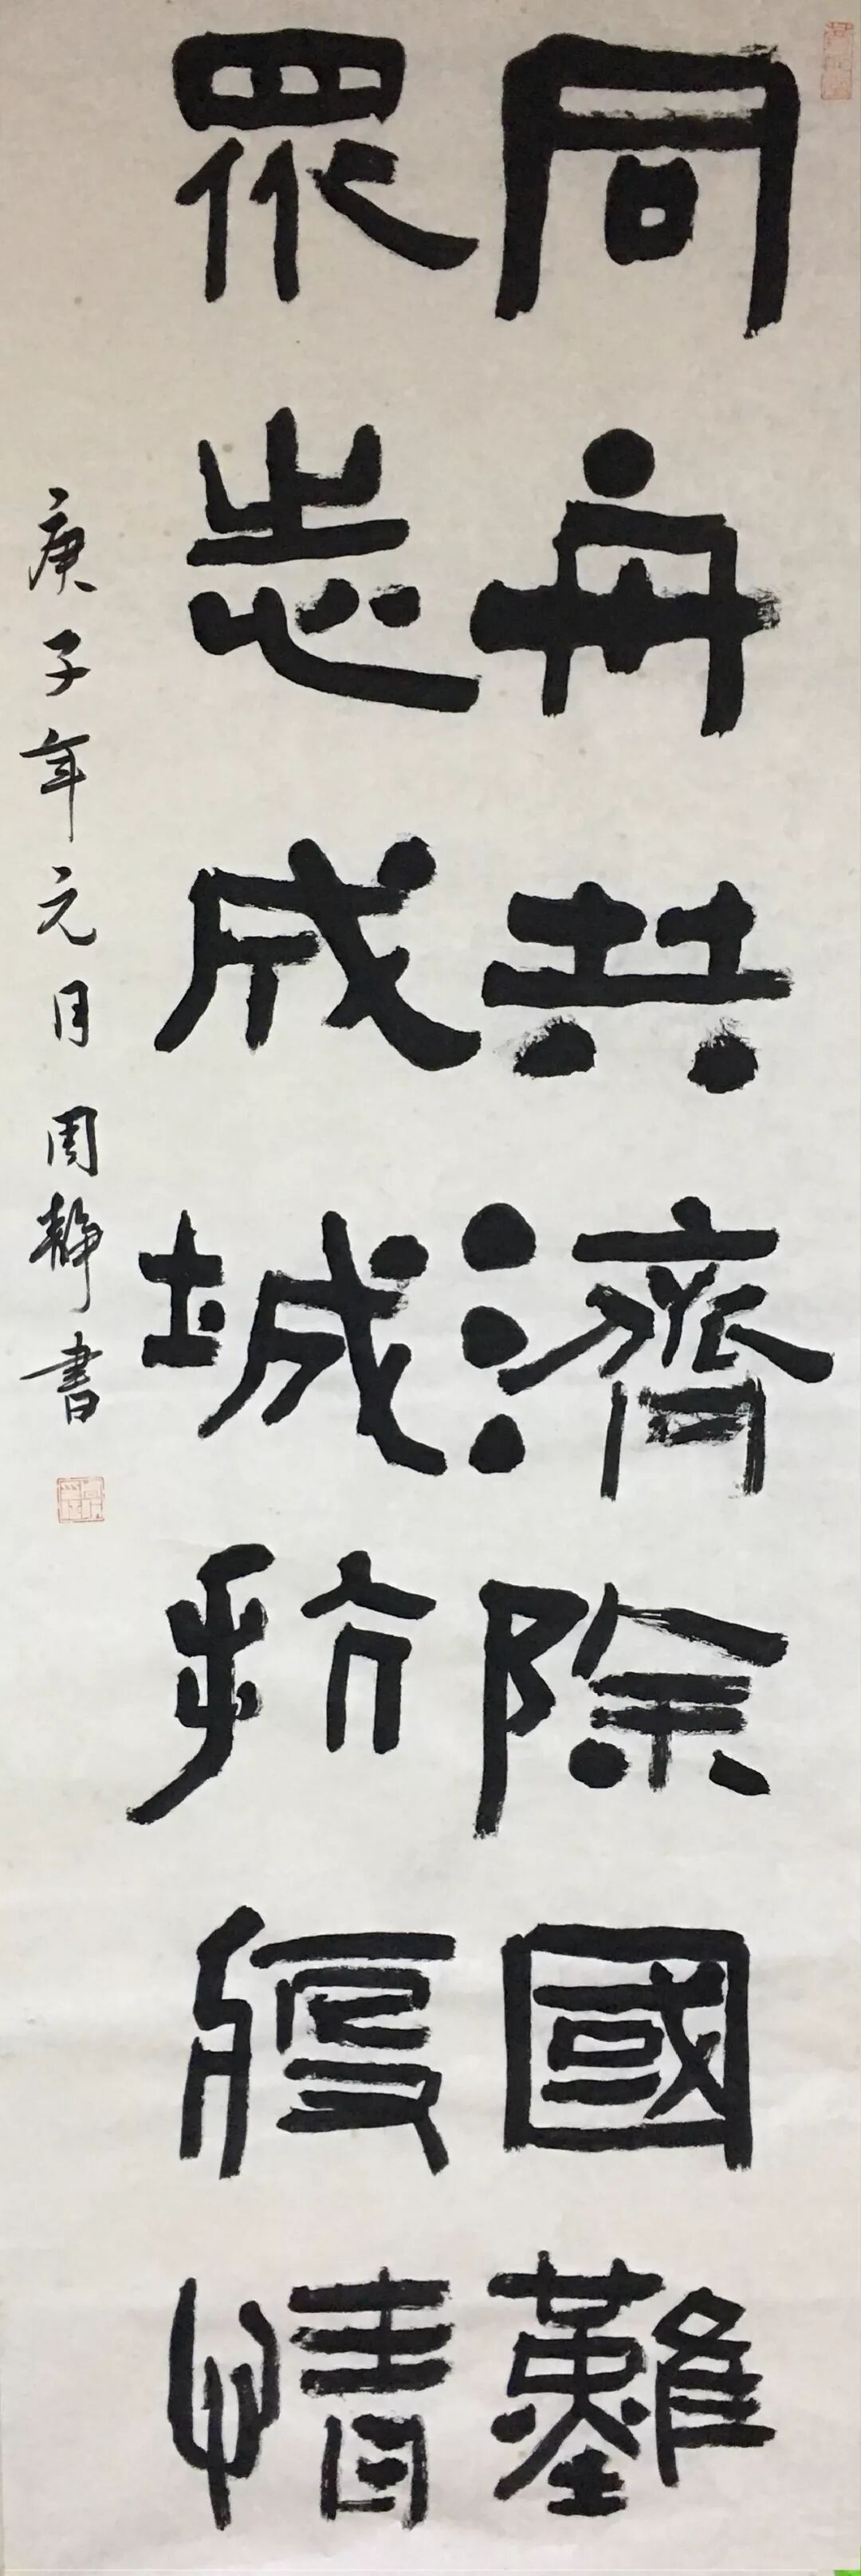 同舟共濟除國難
眾志成城抗疫情
庚子年元月周靜書